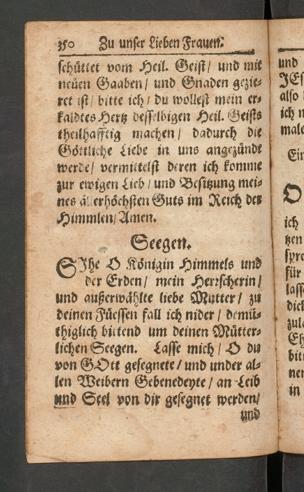 350 Zu unser Lieben Frauen.
schüttet vom Heil. Geist / und mit
neüen Gaaben / und Gnaden gezie-
ret ist / bitte ich / du wollest mein er-
kaldtes Hertz desselbigen Heil. Geists
theilhafftig machen / dadurch die
Göttliche Liebe in uns angezünde
werde / vermittelst deren ich komme
zur ewigen Lieb / und Besitzung mei-
nes allerhöchsten Guts im Reich der
Himmlen / Amen.
Seegen.
SIhe O Königin Himmels und
der Erden / mein Herrscherin /
und außerwählte liebe Mutter / zu
deinen Füessen fall ich nider / demü-
thiglich bittend um deinen Mütter-
lichen Seegen. Lasse mich / O du
von GOtt gesegnete / und under al-
len Weibern Gebenedeyte / an Leib
und Seel von dir gesegnet werden /
und
und
JEs
also
ich
male
Ein
O
ich
spre
für
lass
dich
zula
Eh
bit
nen
in